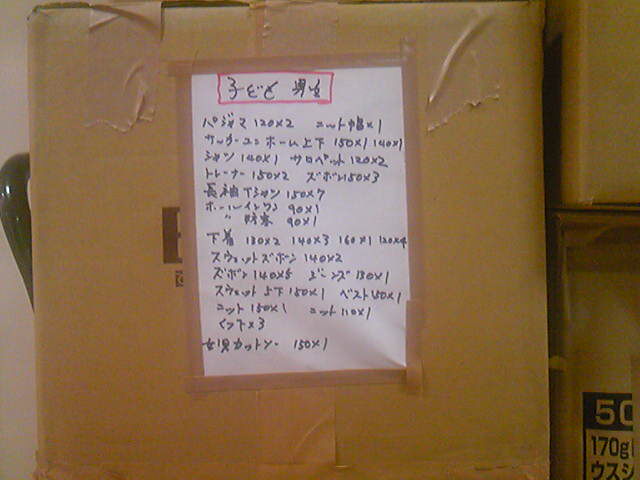 子ども 男生
パジャマ 120×2 ニット帽×1
サッカーユニホーム上下 150×1 140×1
シャツ 140×1 サロペット 120×2
トレーナー 150×2 ズボン 150×3
長袖Tシャツ 150×7
ホールインワン 90×1
〃 防寒 90×1
下着 130×2 140×3 160×1 120×4
スウェットズボン 140×2
ズボン 140×5 ジーンズ 130×1
スウェット上下 150×1 ベスト 150×1
ニット 150×1 ニット 110×1
くつ下×3
女児カットソー 150×1
50
170g
ウスシ